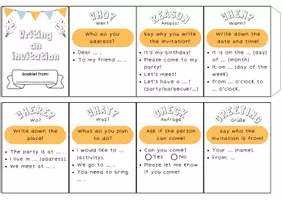 Writing
an
invitation
Booklet from:
WHO?
Wer?
Who do you
address?
Dear ... ,
To my friend ... ,
REASON
Anlass:
Say why you write
the invitation!
It's my birthday!
Please come to my
party!
Let's meet!
Let's have a ... !
(party/barbecue/...)
WHEN?
Wann?
Write down the
date and time!
It is on the ... (day)
of ... (month)
It is on ... (day of
the week)
From ... o'clock to
... o'clock.
WHERE?
Wo?
Write down the
place!
The party is at ... .
I live in ... (address).
We meet at ... .
WHAT?
Was?
What do you plan
to do?
I would like to ...
(activity).
We go to ... .
You need to bring
... .
CHECK
Abfrage:
Ask if the person
can come!
Can you come?
Yes
No
Please let me know
if you come!
GREETING
Grüße
Say who the
invitation is from!
Your ... (name).
From ... .